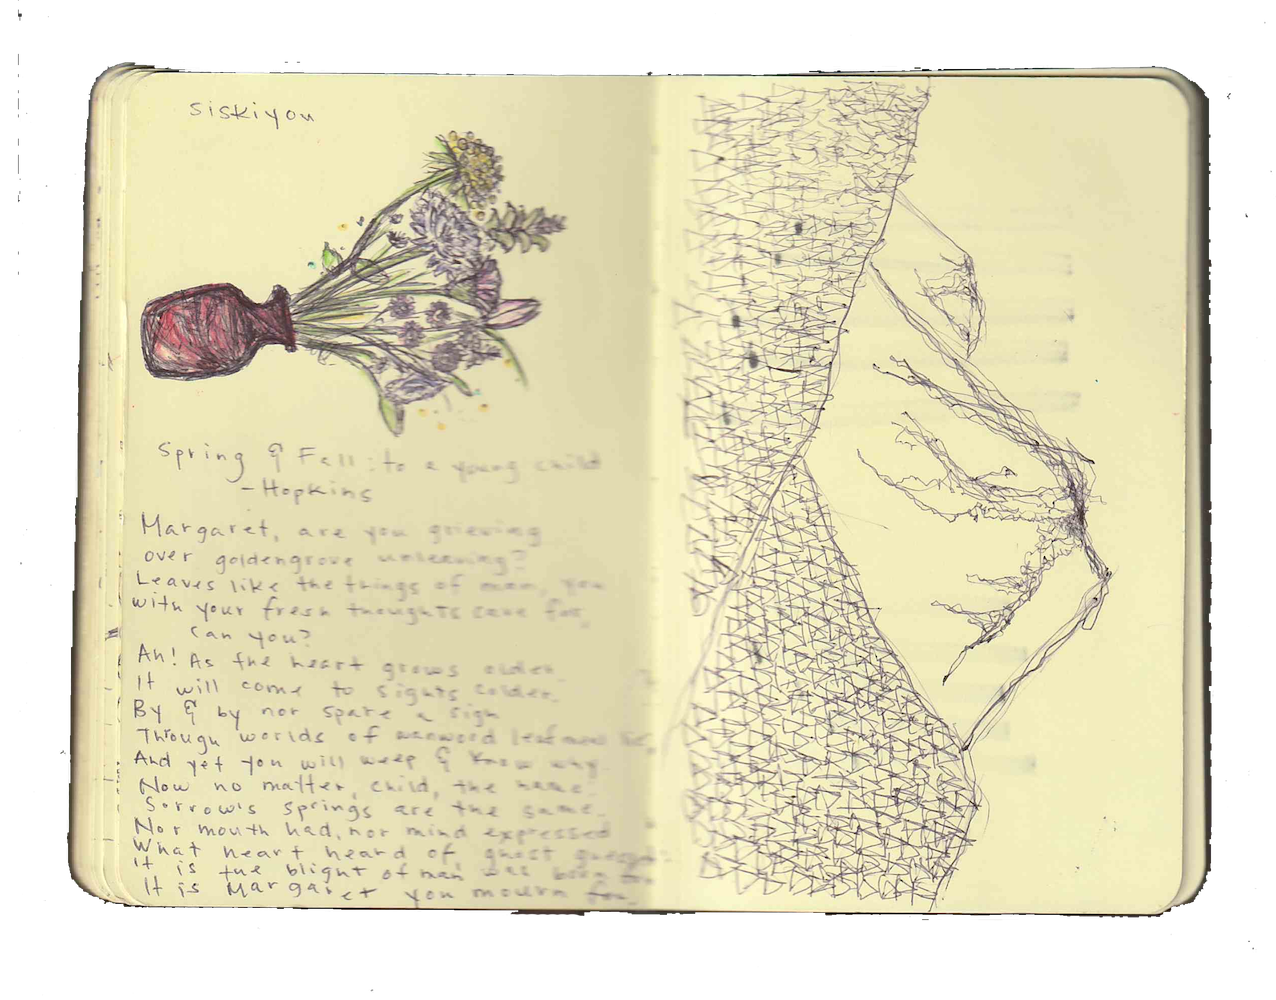 siskiyou
Spring & Fall: to a young child
- Hopkins
Margaret, are you grieving
over goldengrove unleaving?
Leaves like the things of man, you
with your fresh thoughts care for,
can you?
Ah! As the heart grows older
It will come to sights colder.
By & by nor spare a sigh
Through worlds of wanwood leafmeal lie,
And yet you will weep & know why.
Now no matter, child, the name:
Sorrow's springs are the same.
Nor mouth had, nor mind expressed
What heart heard of, ghost guessed:
It is the blight of man was born for
It is Margaret you mourn for.